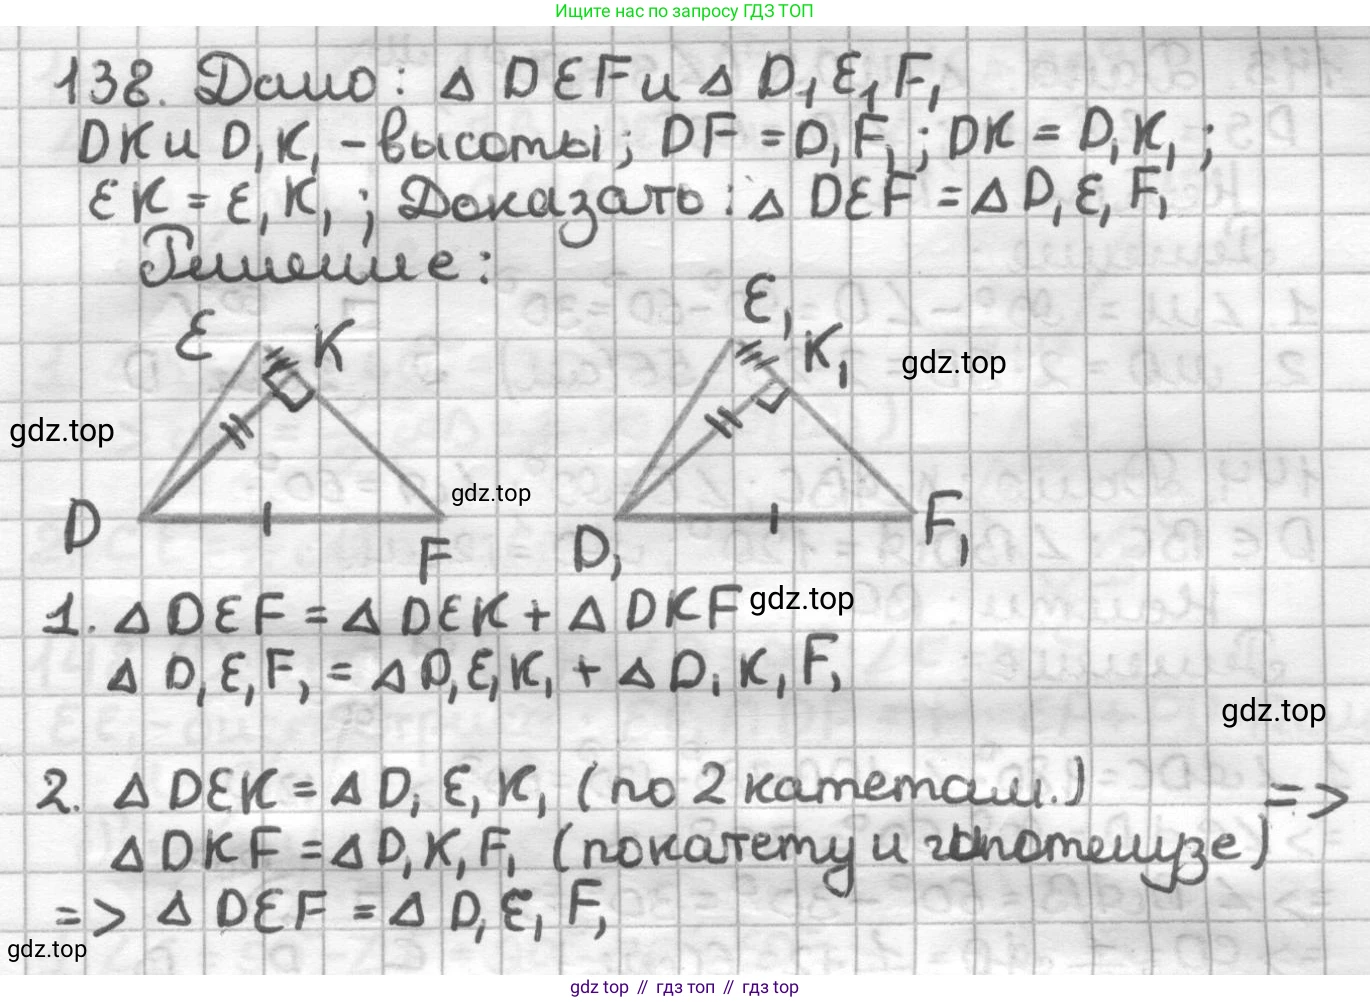 Ищите нас по запросу ГДЗ ТОП
138. Дано: △ DEF и △ D₁E₁F₁
DK и D₁K₁ - высоты; DF = D₁F₁; DK = D₁K₁;
EK = E₁K₁; Доказать: △ DEF = △ D₁E₁F₁
Решение:
E K
E₁ K₁
gdz.top
gdz.top
gdz.top
D F
D₁ F₁
1. △ DEF = △ DEK + △ DKF
gdz.top
△ D₁E₁F₁ = △ D₁E₁K₁ + △ D₁K₁F₁
gdz.top
2. △ DEK = △ D₁E₁K₁ (по 2 катетам.)
△ DKF = △ D₁K₁F₁ (по катету и гипотенузе) =>
=> △ DEF = △ D₁E₁F₁
gdz.top
gdz top // гдз топ // gdz top